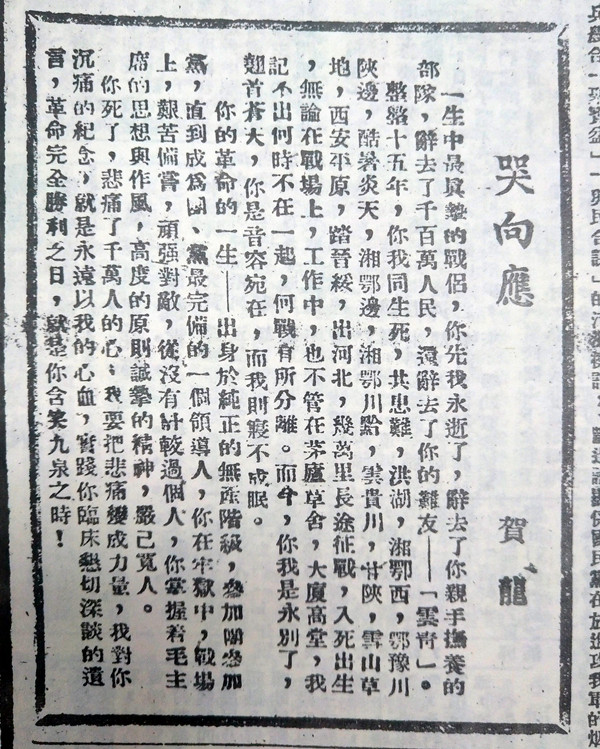 哭向應
賀龍
一生中最眞摯的戰侶,你先我永逝了,辭去了你親手撫養的
部隊,辭去了千百萬人民,還辭去了你的難友——「雲」。
整整十五年,你我同生死,共患難,洪湖,湘鄂西,鄂豫川
陝邊,酷暑炎天,湘鄂邊,湘鄂川黔,雲貴川,甘陝,雪山草
地,西安平原,踏晉綏,出河北,幾萬里長途征戰,入死出生
,無論在戰場上,工作中,也不管在茅廬草舍,大廈高堂,我
記不出何時不在一起,何戰有所分離。而今,你我是永別了,
翹首蒼天,你是音容宛在,而我則寢不成眠。
你的革命的一生——出身於純正的無產階級,參加團參加
黨,直到成爲團、黨最完備的一個領導人,你在牢獄中,戰場
上,艱苦備嘗,頑强對敵,從沒有計較過個人,你掌握着毛主
席的思想與作風,高度的原則誠摯的精神,嚴己寬人。
你死了,悲痛了千萬人的心;我要把悲痛變成力量,我對你
沉痛的紀念,就是永遠以我的心血,實踐你臨床懇切深談的遺
言,革命完全勝利之日,就是你含笑九泉之時!